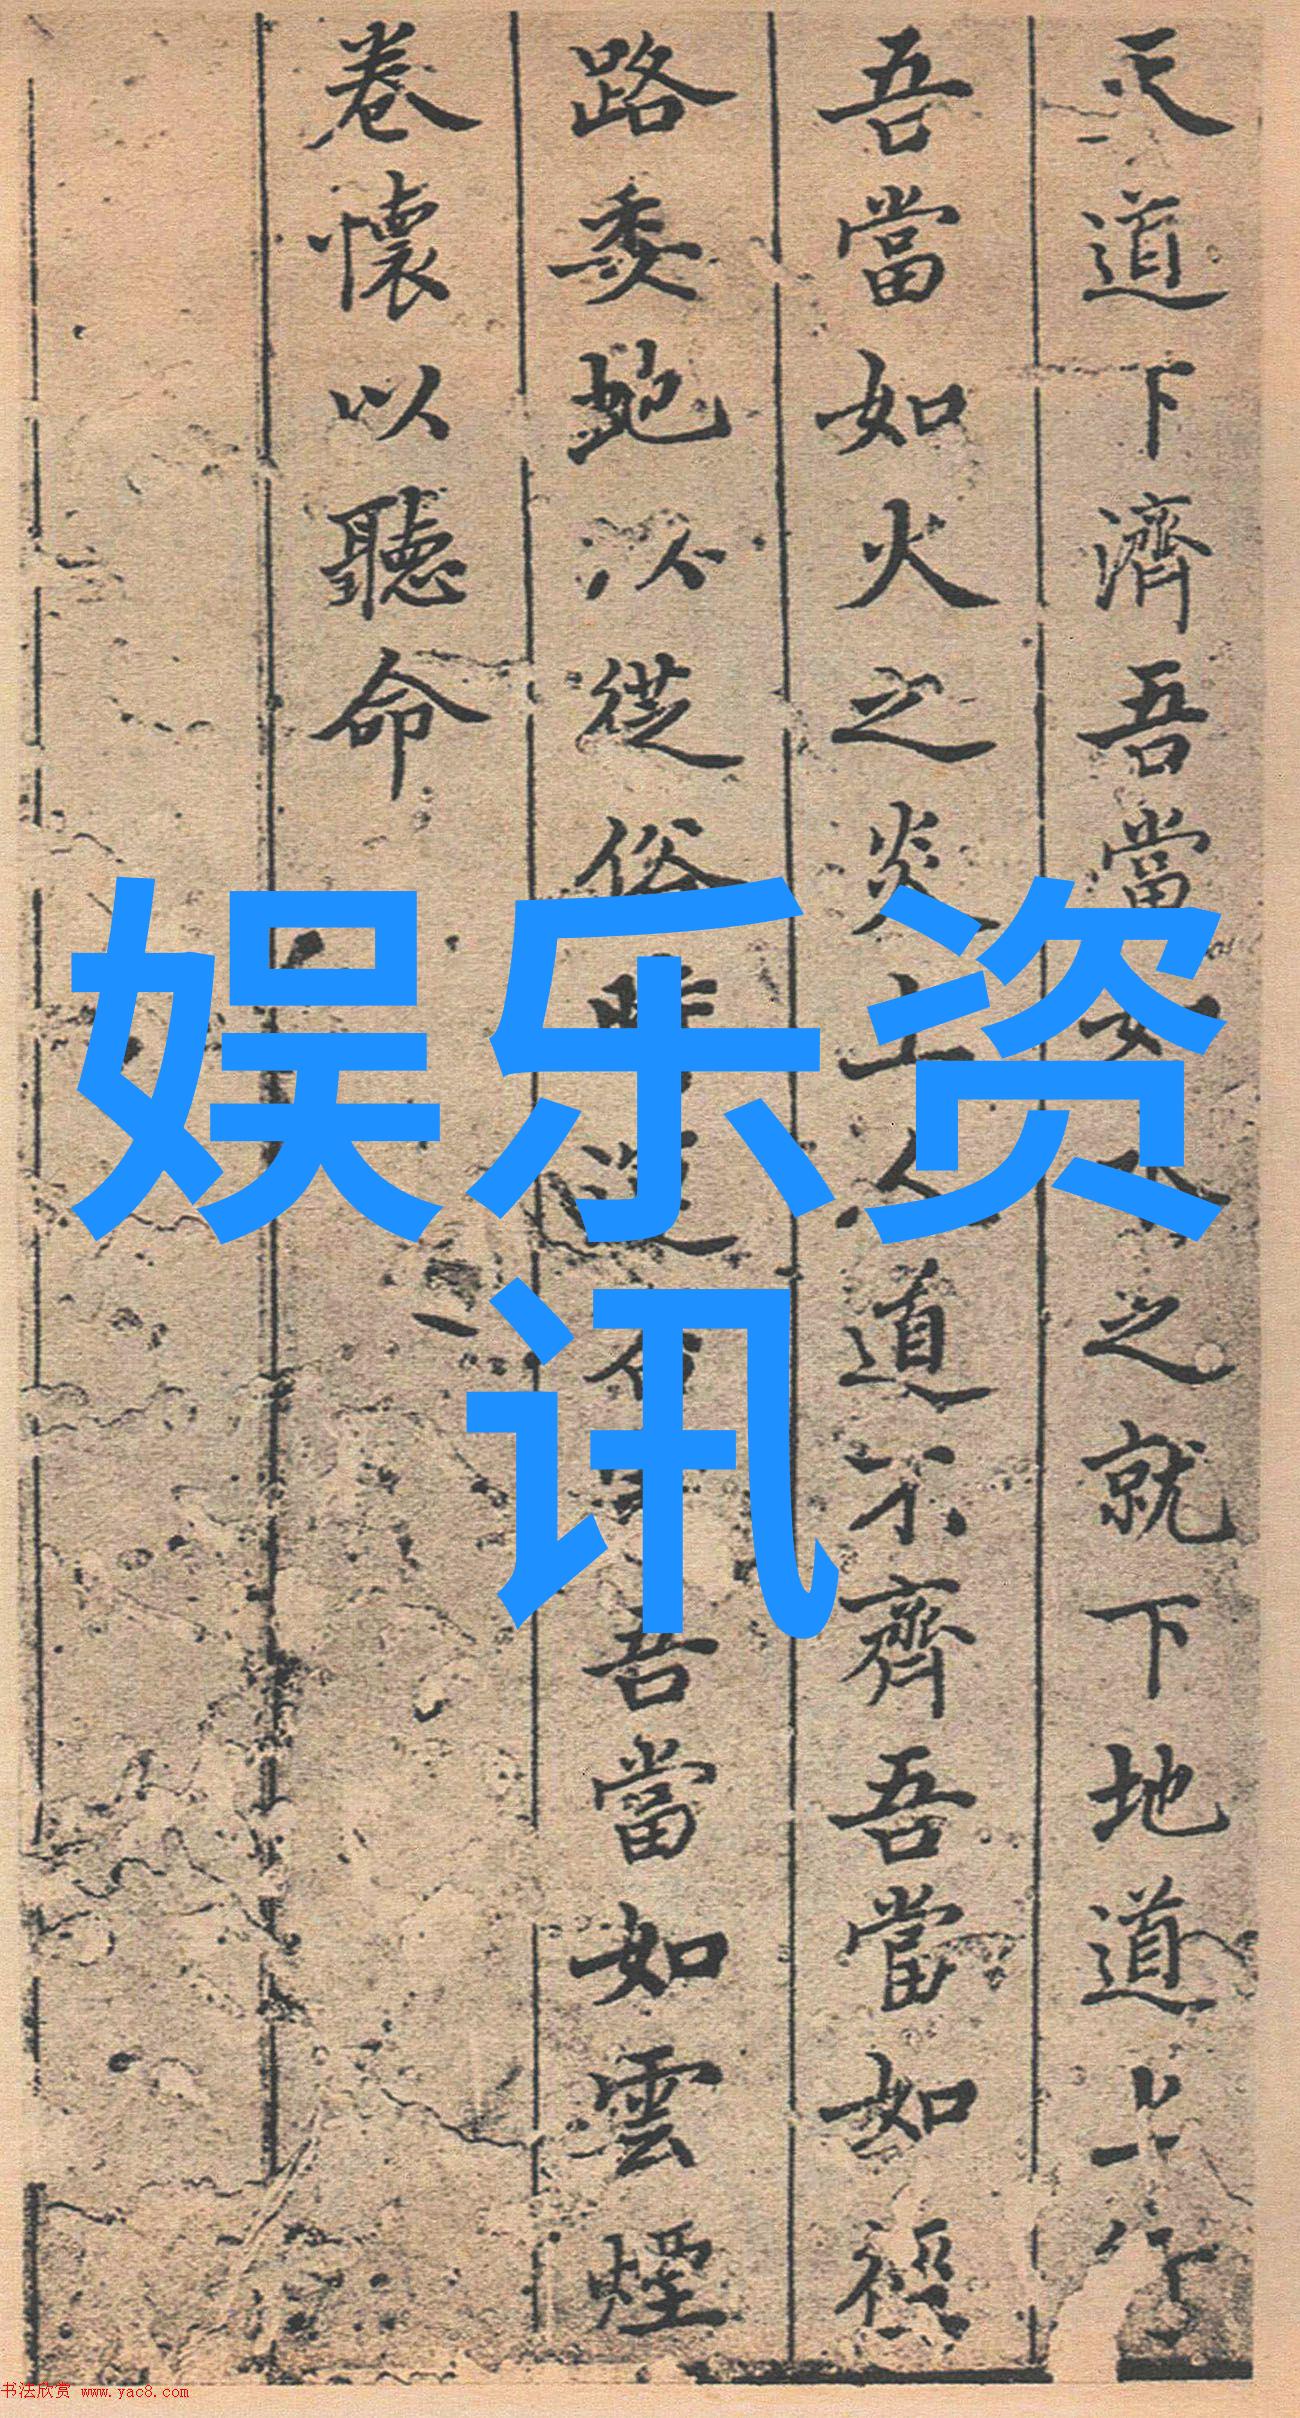 天道下濟吾當如水之就下地道上行
吾當如火之炎上人道不齊吾當如
路委地以從俗時
吾當如雲煙
卷懷以聽命
娱乐资
讯
书法欣赏 www.yac8.com